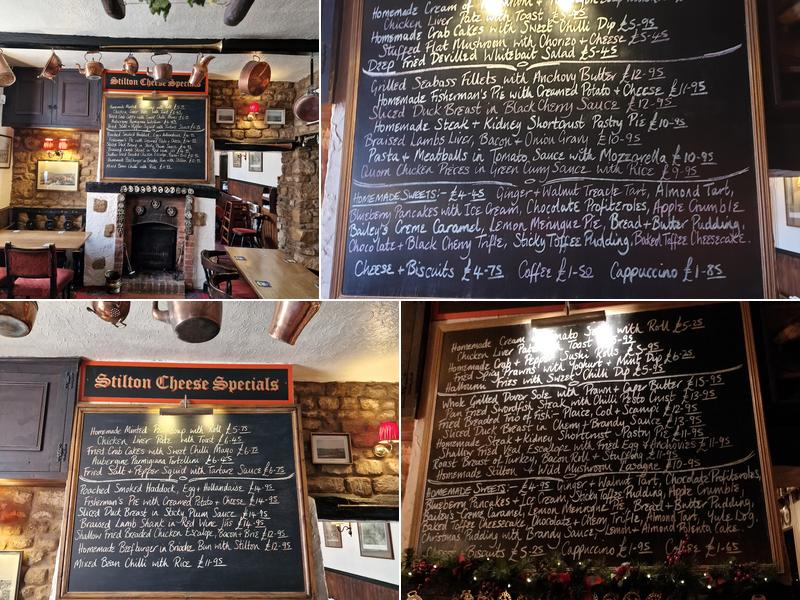 Stilton Cheese Specials
Homemade Cream of
Chicken Liver Pate with Toast
Homemade Crab Cakes with Sweet Chilli Dip £5-95
Stuffed Flat Mushroom with Chorizo + Cheese £5-45
Deep Fried Devilled Whitebait Salad £5-45
Grilled Seabass Fillets with Anchovy Butter £12-95
Homemade Fisherman's Pie with Creamed Potato + Cheese £11-95
Sliced Duck Breast in Black Cherry Sauce £12-95
Homemade Steak + Kidney Shortcrust Pastry Pie £10-95
Braised Lambs Liver, Bacon + Onion Gravy £10-95
Pasta + Meatballs in Tomato Sauce with Mozzarella £10-95
Quorn Chicken Pieces in Green Curry Sauce with Rice £9-95
HOMEMADE SWEETS:- £4-45 Ginger + Walnut Treacle Tart, Almond Tart,
Blueberry Pancakes with Ice Cream, Chocolate Profiteroles, Apple Crumble
Bailey's Creme Caramel, Lemon Meringue Pie, Bread + Butter Pudding,
Chocolate + Black Cherry Trifle, Sticky Toffee Pudding, Baked Toffee Cheesecake.
Cheese + Biscuits £4-75 Coffee £1-50 Cappuccino £1-85
Stilton Cheese Specials
Homemade Minted Pea Soup with Roll £5-75
Chicken Liver Pate with Toast £6-45
Fried Crab Cakes with Sweet Chilli Mayo £6-75
Aubergine Parmigiana Tortelloni £6-45
Fried Salt + Pepper Squid with Tartare Sauce £6-75
Poached Smoked Haddock, Egg + Hollandaise £14-95
Fisherman's Pie with Creamed Potato + Cheese £14-95
Sliced Duck Breast in Sticky Plum Sauce £14-95
Braised Lamb Shank in Red Wine Jus £14-95
Shallow Fried Breaded Chicken Escalope, Bacon + Brie £12-95
Homemade Beefburger in Brioche Bun with Stilton £12-95
Mixed Bean Chilli with Rice £11-95
Homemade Cream Tomato with Roll £5-25
Chicken Liver Pate Toast £5-95
Homemade Crab + Sushi Rolls
Fried Spicy Prawns with Yoghurt + Mint Dip £6-25
Halloumi Fries with Sweet Chilli Dip £5-95
Whole Grilled Dover Sole with Prawn + Caper Butter £15-95
Pan Fried Swordfish Steak with Chilli Pesto Crust £13-95
Fried Breaded Trio of Fish - Plaice, Cod + Scampi £12-95
Sliced Duck Breast in Cherry + Brandy £13-95
Homemade Steak + Kidney Shortcrust Pastry Pie £11-95
Shallow Fried Veal Escalope with Fried Egg + Anchovies £11-95
Roast Breast of Turkey, Bacon Roll + Stuffing £11-95
Homemade Stilton + Wild Mushroom Lasagne £10-95
HOMEMADE SWEETS:- £4-95 Ginger + Walnut Tart, Chocolate Profiteroles,
Blueberry Pancakes + Ice Cream, Sticky Toffee Pudding, Apple Crumble,
Bailey's Creme Caramel, Lemon Meringue Pie, Bread + Butter Pudding,
Baked Toffee Cheesecake, Chocolate + Cherry Trifle, Almond Tart, Yule Log,
Christmas Pudding with Brandy Sauce, Lemon + Almond Polenta Cake.
Cheese + Biscuits £5-25 Cappuccino £1-95 Coffee £1-65